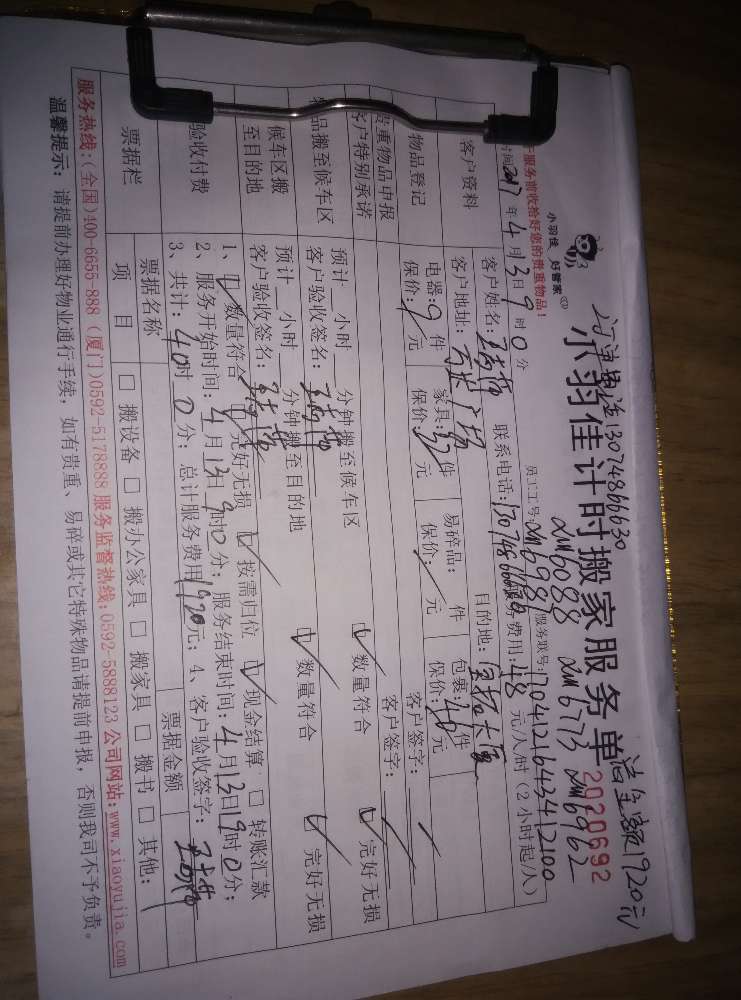 订单电话13074866630
洁全额1920元
小羽佳 好管家
小羽佳计时搬家服务单 2020692
2M6088 2M6773 2M6962
服务前收拾好您的贵重物品！
时间2017年4月13日9时0分 员工工号:2M6981 服务联号:1704121643412100
客户资料 客户姓名: 联系电话:13074866630 服务费用:48元/人/时(2小时起/人)
客户地址: 目的地:
物品登记 电器:9件 家具:32件 易碎品: 件 包裹:46件
保价: 元 保价: 元 保价: 元 保价: 元
贵重物品申报 客户签字:
客户特别承诺 客户签字:
物品搬至候车区 预计 小时 分钟搬至候车区 数量符合 完好无损
客户验收签名:
候车区搬至目的地 预计 小时 分钟搬至目的地 数量符合 完好无损
客户验收签名:
验收付费 1、数量符合 完好无损 按需归位 现金结算 转账汇款
2、服务开始时间:4月13日9时0分;服务结束时间:4月13日19时0分;
3、共计:40时0分;总计服务费用1920元;4、客户验收签字:
票据栏 票据名称 票据金额
项目 搬设备 搬办公家具 搬家具 搬书 其他:
服务热线:(全国)400-6655-888 (厦门)0592-5178888 服务监督热线:0592-5888123 公司网站:www.xiaoyujia.com
温馨提示: 请提前办理好物业通行手续,如有贵重、易碎或其它特殊物品请提前申报,否则我司不予负责。